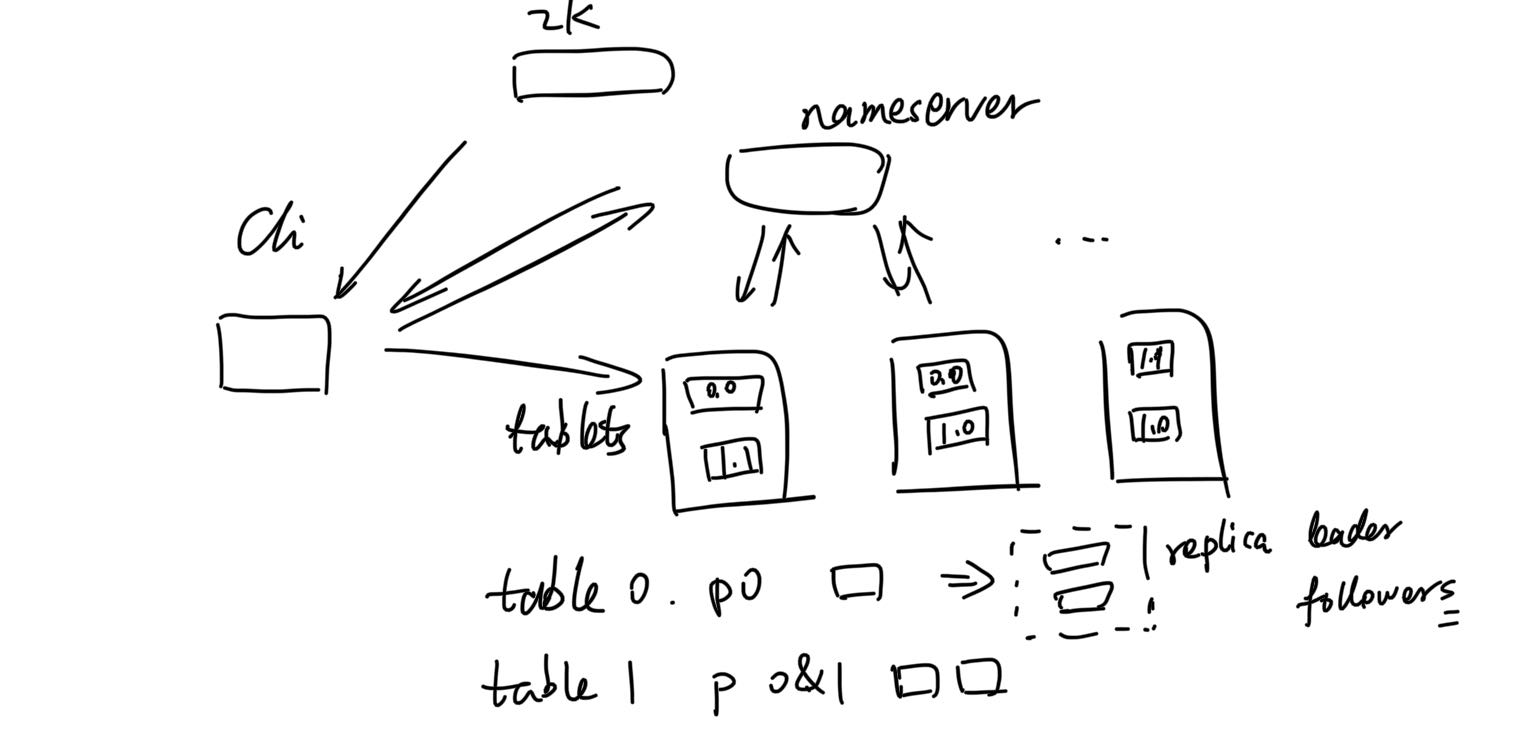 zk
nameserver
Cli
...
0.0
1.1
0.0
1.0
1.1
1.0
tablets
table 0. p0 ⇒ replica leader
followers
table 1 p 0&1